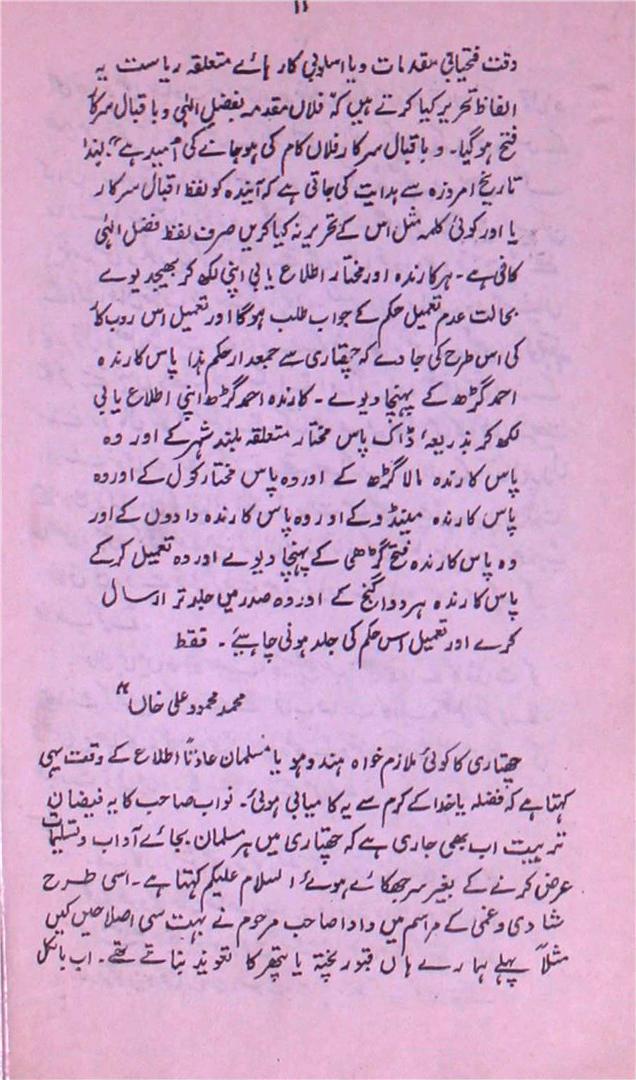 ۱۱
وقت فتحیابی مقدمات و یا اسلوبی کار ہائے متعلقہ ریاست یہ
الفاظ تحریر کیا کرتے ہیں کہ فلاں مقدمہ بفضل الٰہی و باقبال سرکار
فتح ہوگیا۔ و باقبال سرکار فلاں کام کی ہوجانے کی امید ہے“۔ لہٰذا
تاریخ امروزہ سے ہدایت کی جاتی ہے کہ آیندہ کو لفظ اقبال سرکار
یا اور کوئی کلمہ مثل اس کے تحریر نہ کیا کریں صرف لفظ فضل الٰہی
کافی ہے۔ ہر کارندہ اور مختار اطلاع یابی اپنی لکھ کر بھیجد یوے
بحالت عدم تعمیل حکم کے جواب طلب ہوگا اور تعمیل اس روبکار
کی اس طرح کی جاوے کہ چھتاری سے جمعدار حکم ہذا پاس کارندہ
احمد گڑھ کے پہنچا دیوے۔ کارندہ احمد گڑھ اپنی اطلاع یابی
لکھ کر بذریعہ ڈاک پاس مختار متعلقہ بلند شہر کے اور وہ
پاس کارندہ مالا گڑھ کے اور وہ پاس مختار کول کے اور وہ
پاس کارندہ مینڈو کے اور وہ پاس کارندہ دادوں کے اور
وہ پاس کارندہ فتح گڑھی کے پہنچا دیوے اور وہ تعمیل کر کے
پاس کارندہ ہردوا گنج کے اور وہ صدر میں جلد تر ارسال
کرے اور تعمیل اس حکم کی جلد ہونی چاہیئے۔ فقط
محمد محمود علی خاں“
چھتاری کا کوئی ملازم خواہ ہندو ہو یا مسلمان عادتاً اطلاع کے وقت یہی
کہتا ہے کہ فضلہ یا خدا کے کرم سے یہ کامیابی ہوئی۔ نواب صاحب کا یہ فیضان
تربیت اب بھی جاری ہے کہ چھتاری میں ہر مسلمان بجائے آداب و تسلیمات
عرض کرنے کے بغیر سر جھکائے ہوئے السلام علیکم کہتا ہے۔ اسی طرح
شادی و غمی کے مراسم میں دادا صاحب مرحوم نے بہت سی اصلاحیں کیں
مثلاً پہلے ہمارے ہاں قبور پختہ یا پتھر کا تعویذ بناتے تھے۔ اب بالکل